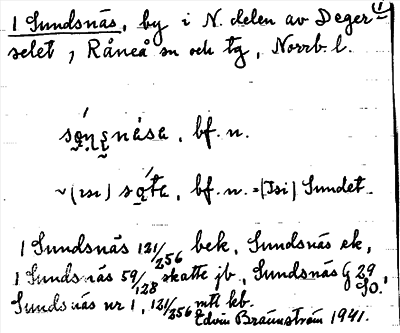 1 Sundsnäs, by i N. delen av Deger- 1
selet, Råneå sn och tg, Norrb. l.
bf. n.
~(ɪsɪ) bf. n. =(Isi) Sundet.
1 Sundsnäs 121/256 bek, Sundsnäs ek,
1 Sundsnäs 59/128 skatte jb, Sundsnäs G 29
SO.,
Sundsnäs nr 1, 121/256 mtl kb.
Edvin Brännström 1941.